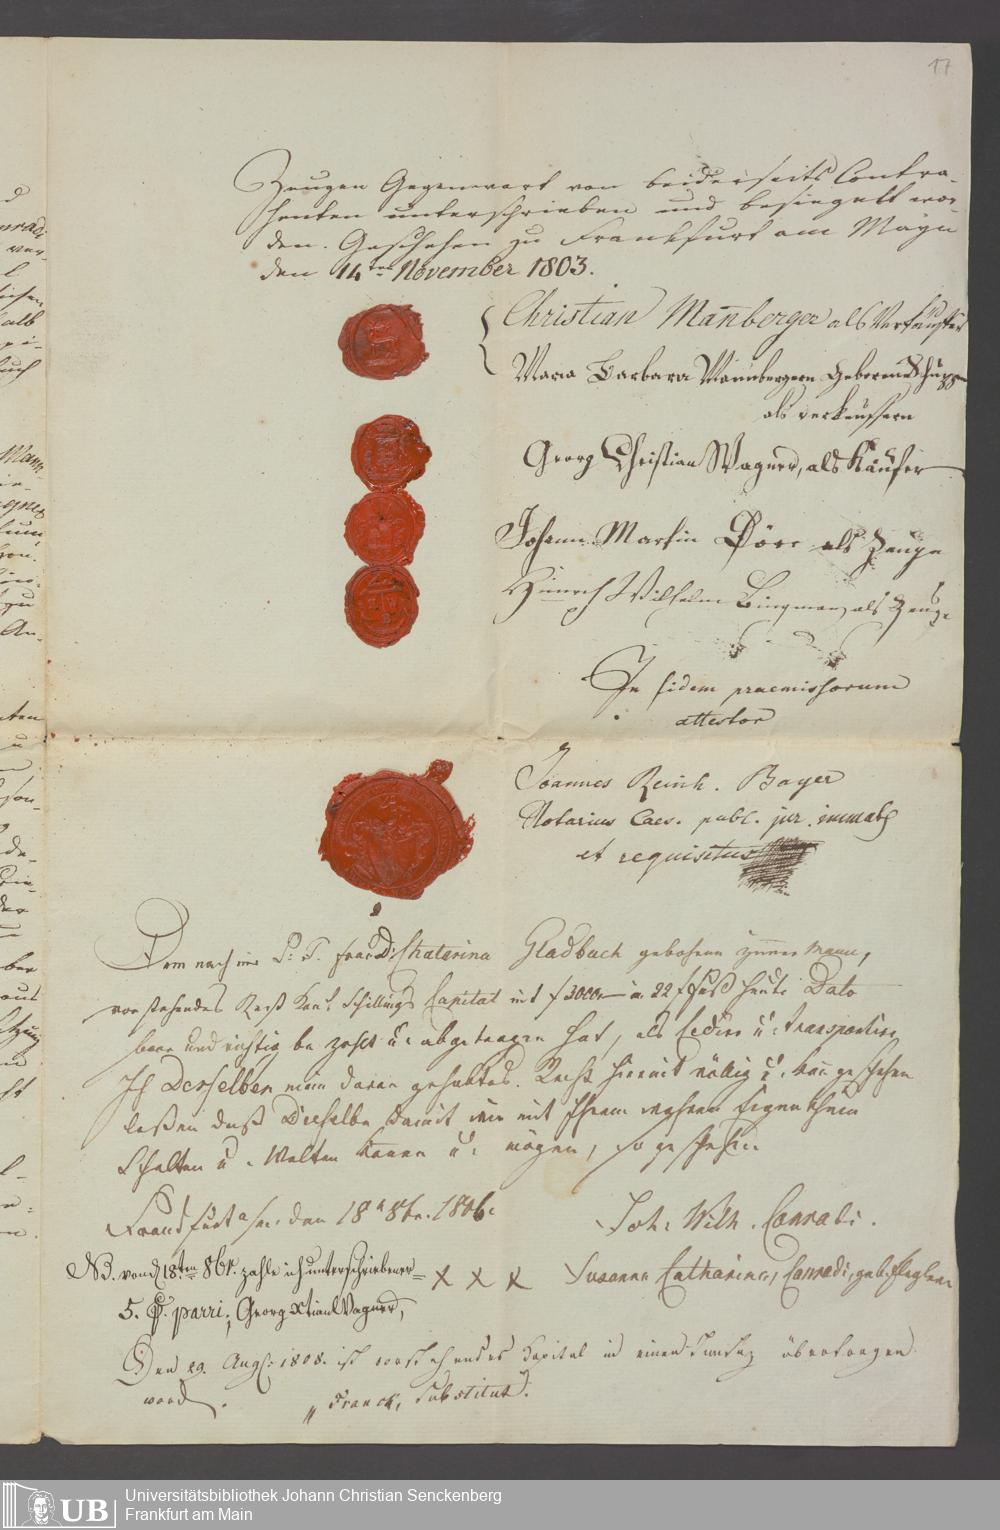 17
Zeugen Gegenwart von beiderseits Contra-
henten unterschrieben und besiegelt wor-
den. Geschehen zu Frankfurt am Mayn
den 14ten November 1803.
Christian Mannberger als Verkäuffer
Maria Barbara Mannbergern Geborene Schupp
als verkeuffern
Georg Christian Wagner, als Käufer
Johann Martin Dörr als Zeuge
Hinrich Wilhelm Bingmann als Zeuge
In fidem praemissorum
attestor
Joannes Reinh. Bayer
Notarius Caes. publ. jur. immatr
et requisitus
Dem nach mir P: T. frau D: Chatarina Gladbach gebohrene Zimmermann,
vorstehendes Rest Kauf Schillings Capital mit f 3000 — in 22 f fuß heute Dato
baar und richtig be zahlt u: abgetragen hat, als Cedire u: transportire
Ich Derselben mein daran gehabtes Recht hiermit völlig u:
laßen daß Dieselbe damit wie mit Ihrem wahren Eigenthum
Schalten u. Walten können u: mögen, so geschehen
Franckfurt a/m. den 18n 8br. 1806.
Joh: Wilh. Conradi.
NB. vom 18ten 8br. zahle ich unterschriebener
X X X
Susanna Catharina, Conradi, geb.
5. P. parri, Georg Xtian Wagner,
Den 29. Augl: 1808. ist vorstehendes Capital in einen Insatz übertragen
word.
Franck, Substitut.
Universitätsbibliothek Johann Christian Senckenberg
Frankfurt am Main
UB